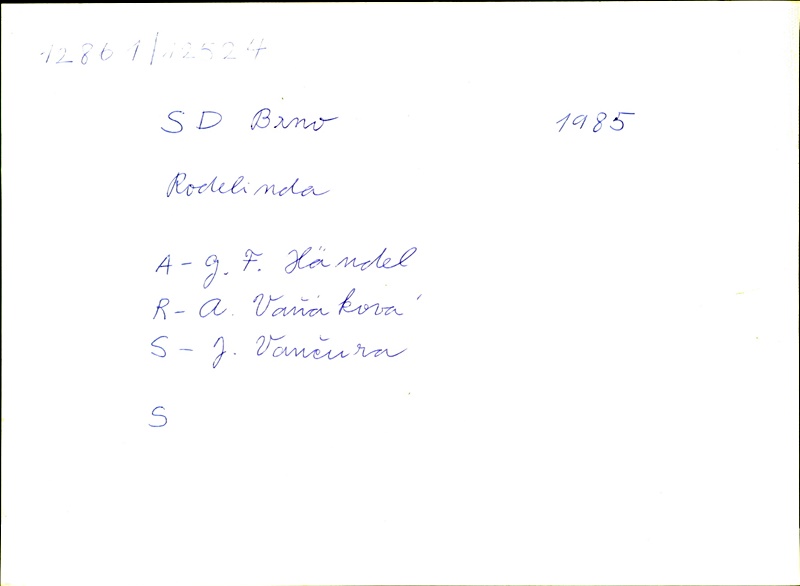 12861/12524
SD Brno 1985
Rodelinda
A - G. F. Händel
R - A. Vaňáková
S - J. Vančura
S